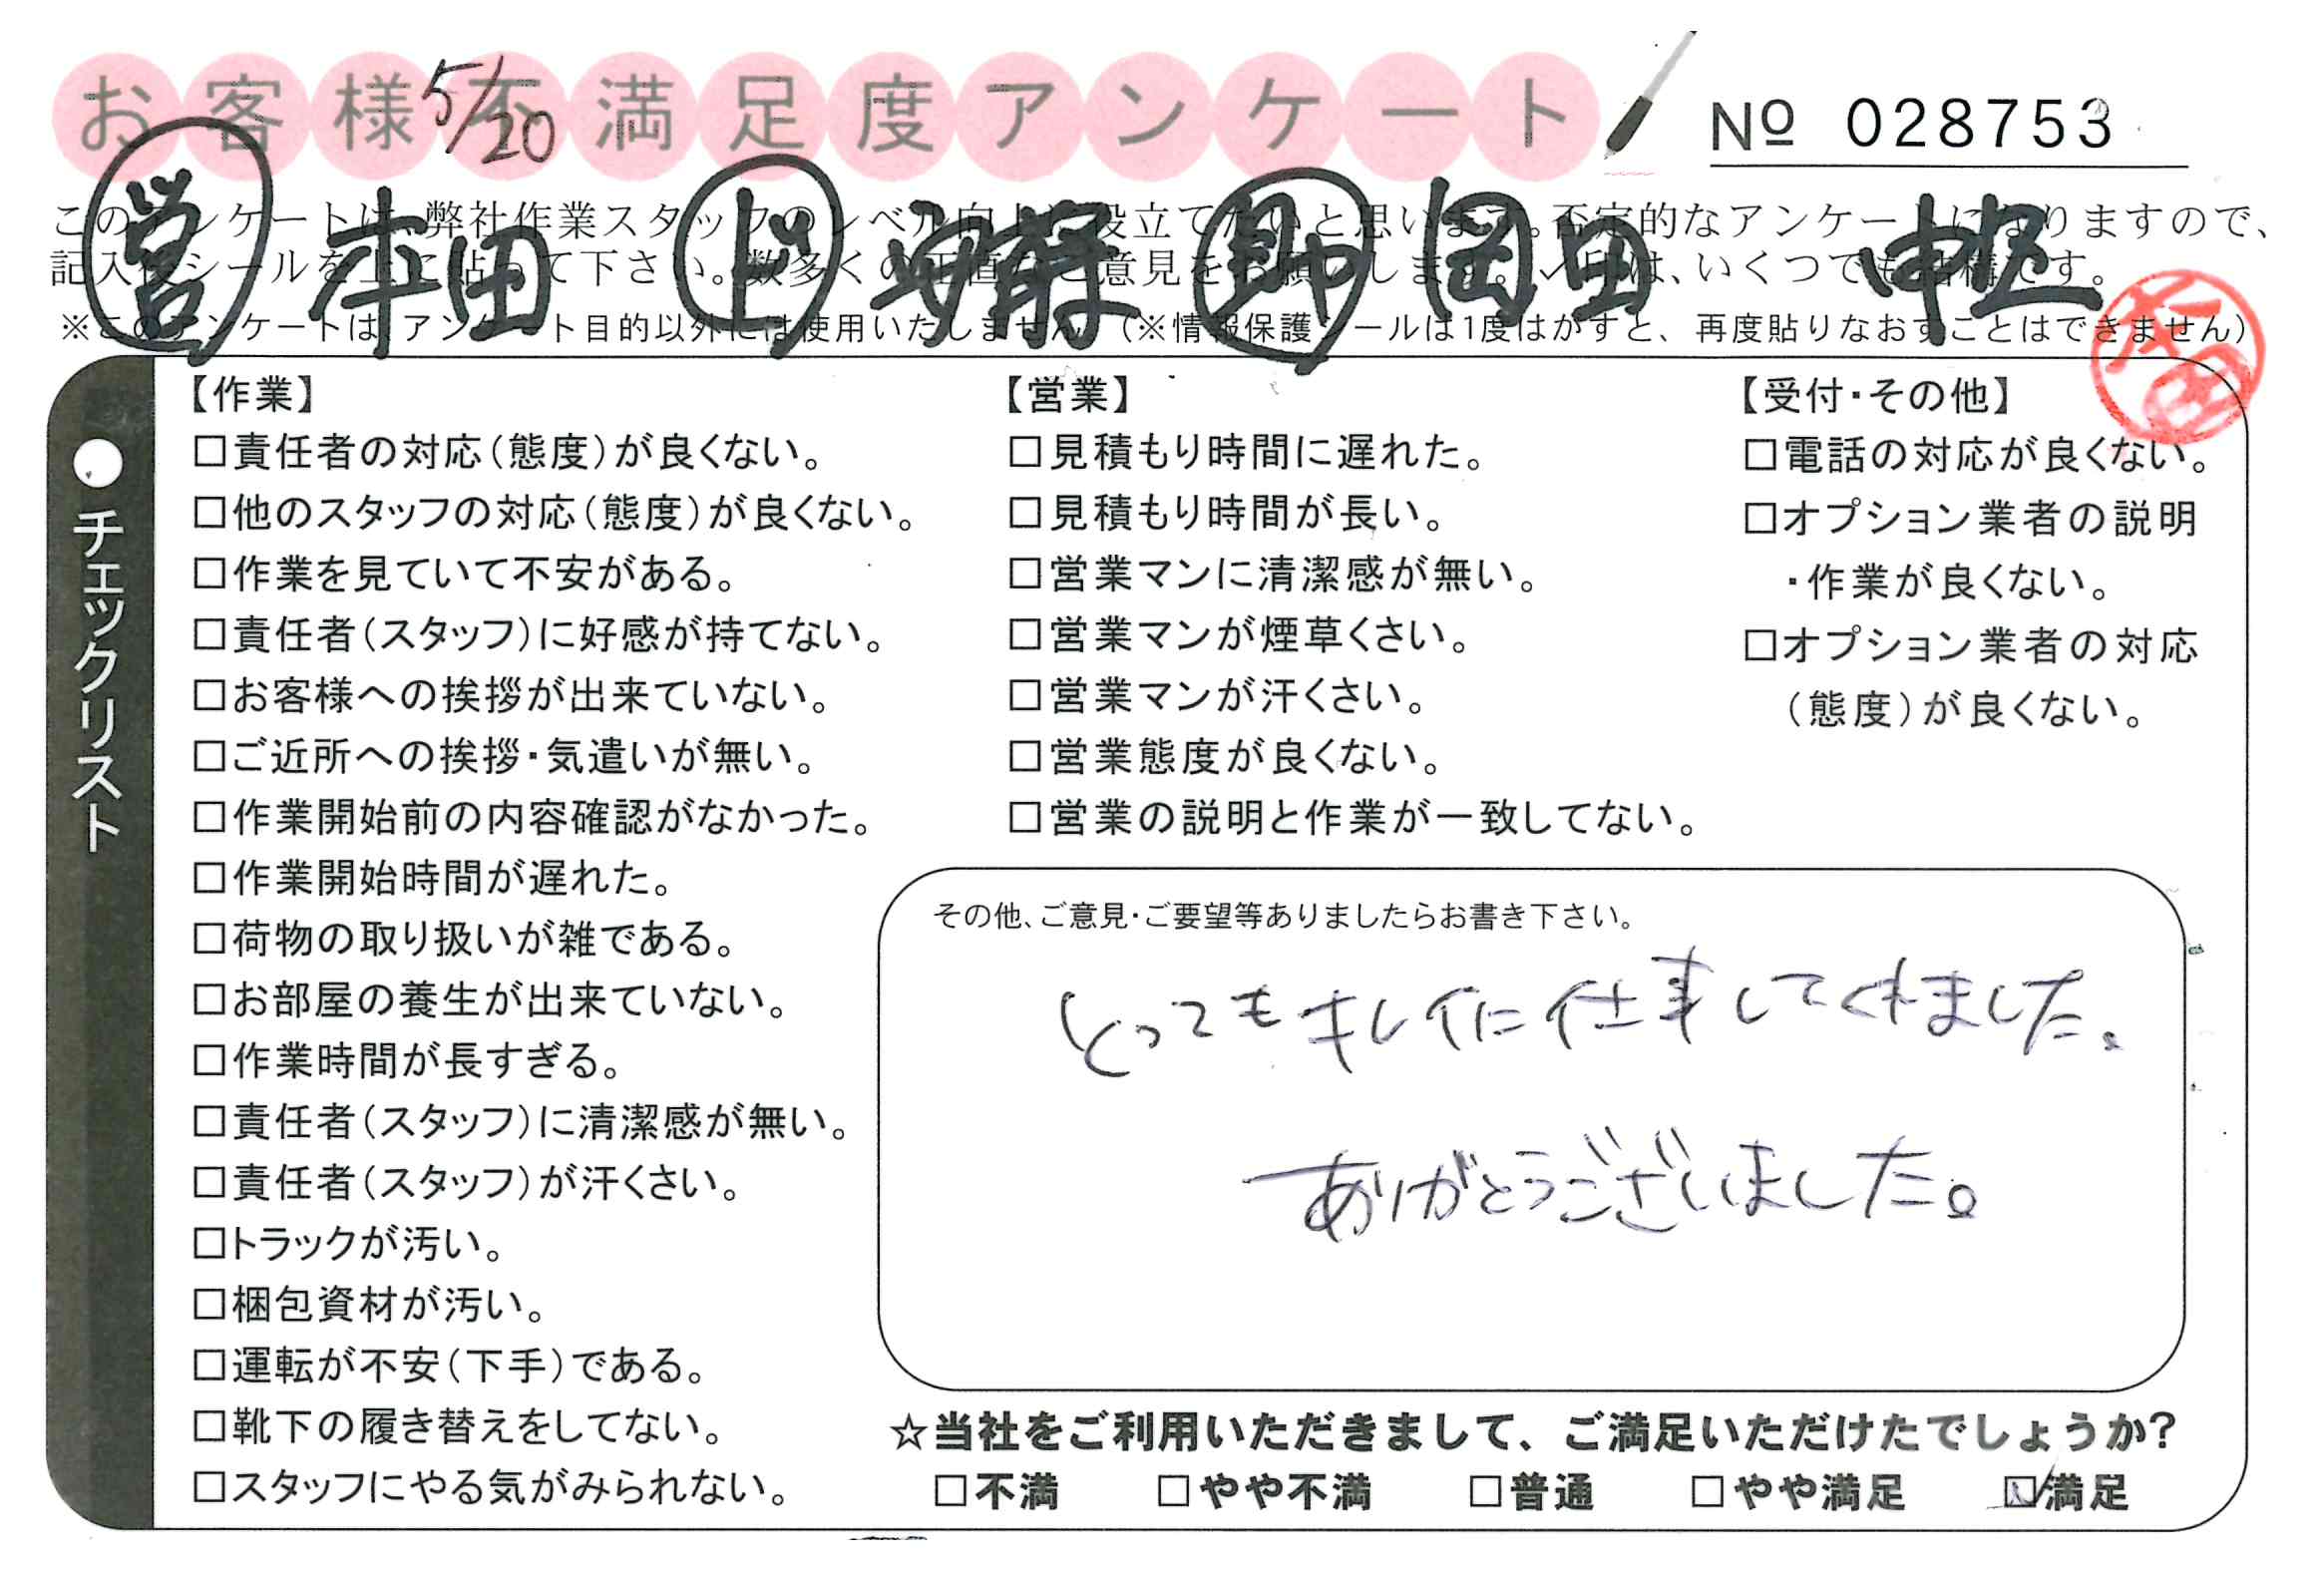 お客様不満足度アンケート
5/20
№ 028753
このアンケートは、弊社作業スタッフのレベル向上に役立てたいと思います。否定的なアンケートになりますので、
記入後シールを上に貼って下さい。数多くの正直なご意見をお願いします。✓印は、いくつでも結構です。
※このアンケートは、アンケート目的以外には使用いたしません。(※情報保護シールは1度はがすと、再度貼りなおすことはできません)
営 本田 上 卸 岡田
チェックリスト
【作業】
□責任者の対応(態度)が良くない。
□他のスタッフの対応(態度)が良くない。
□作業を見ていて不安がある。
□責任者(スタッフ)に好感が持てない。
□お客様への挨拶が出来ていない。
□ご近所への挨拶・気遣いが無い。
□作業開始前の内容確認がなかった。
□作業開始時間が遅れた。
□荷物の取り扱いが雑である。
□お部屋の養生が出来ていない。
□作業時間が長すぎる。
□責任者(スタッフ)に清潔感が無い。
□責任者(スタッフ)が汗くさい。
□トラックが汚い。
□梱包資材が汚い。
□運転が不安(下手)である。
□靴下の履き替えをしてない。
□スタッフにやる気がみられない。
【営業】
□見積もり時間に遅れた。
□見積もり時間が長い。
□営業マンに清潔感が無い。
□営業マンが煙草くさい。
□営業マンが汗くさい。
□営業態度が良くない。
□営業の説明と作業が一致してない。
【受付・その他】
□電話の対応が良くない。
□オプション業者の説明
・作業が良くない。
□オプション業者の対応
(態度)が良くない。
その他、ご意見・ご要望等ありましたらお書き下さい。
とってもキレイに仕事してくれました。
ありがとうございました。
☆当社をご利用いただきまして、ご満足いただけたでしょうか?
□不満 □やや不満 □普通 □やや満足 ☑満足